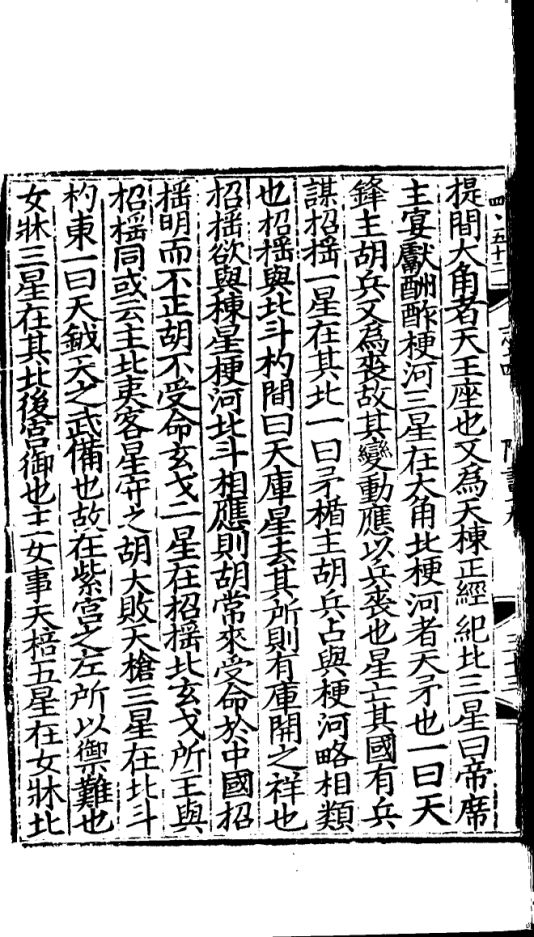 提間大角者天王座也又為天棟正經紀北三星曰帝席
主宴獻酬酢梗河三星在大角北梗河者天矛也一曰天
鋒主胡兵又為喪故其變動應以兵喪也星亡其國有兵
謀招搖一星在其北一曰矛楯主胡兵占與梗河略相類
也招搖與北斗杓間曰天庫星去其所則有庫開之祥也
招搖欲與棟星梗河北斗相應則胡常來受命於中國招
搖明而不正胡不受命玄戈二星在招搖北玄戈所主與
招搖同或云主北夷客星守之胡大敗天槍三星在北斗
杓東一曰天鉞天之武備也故在紫宮之左所以禦難也
女牀三星在其北後宮御也主女事天棓五星在女牀北